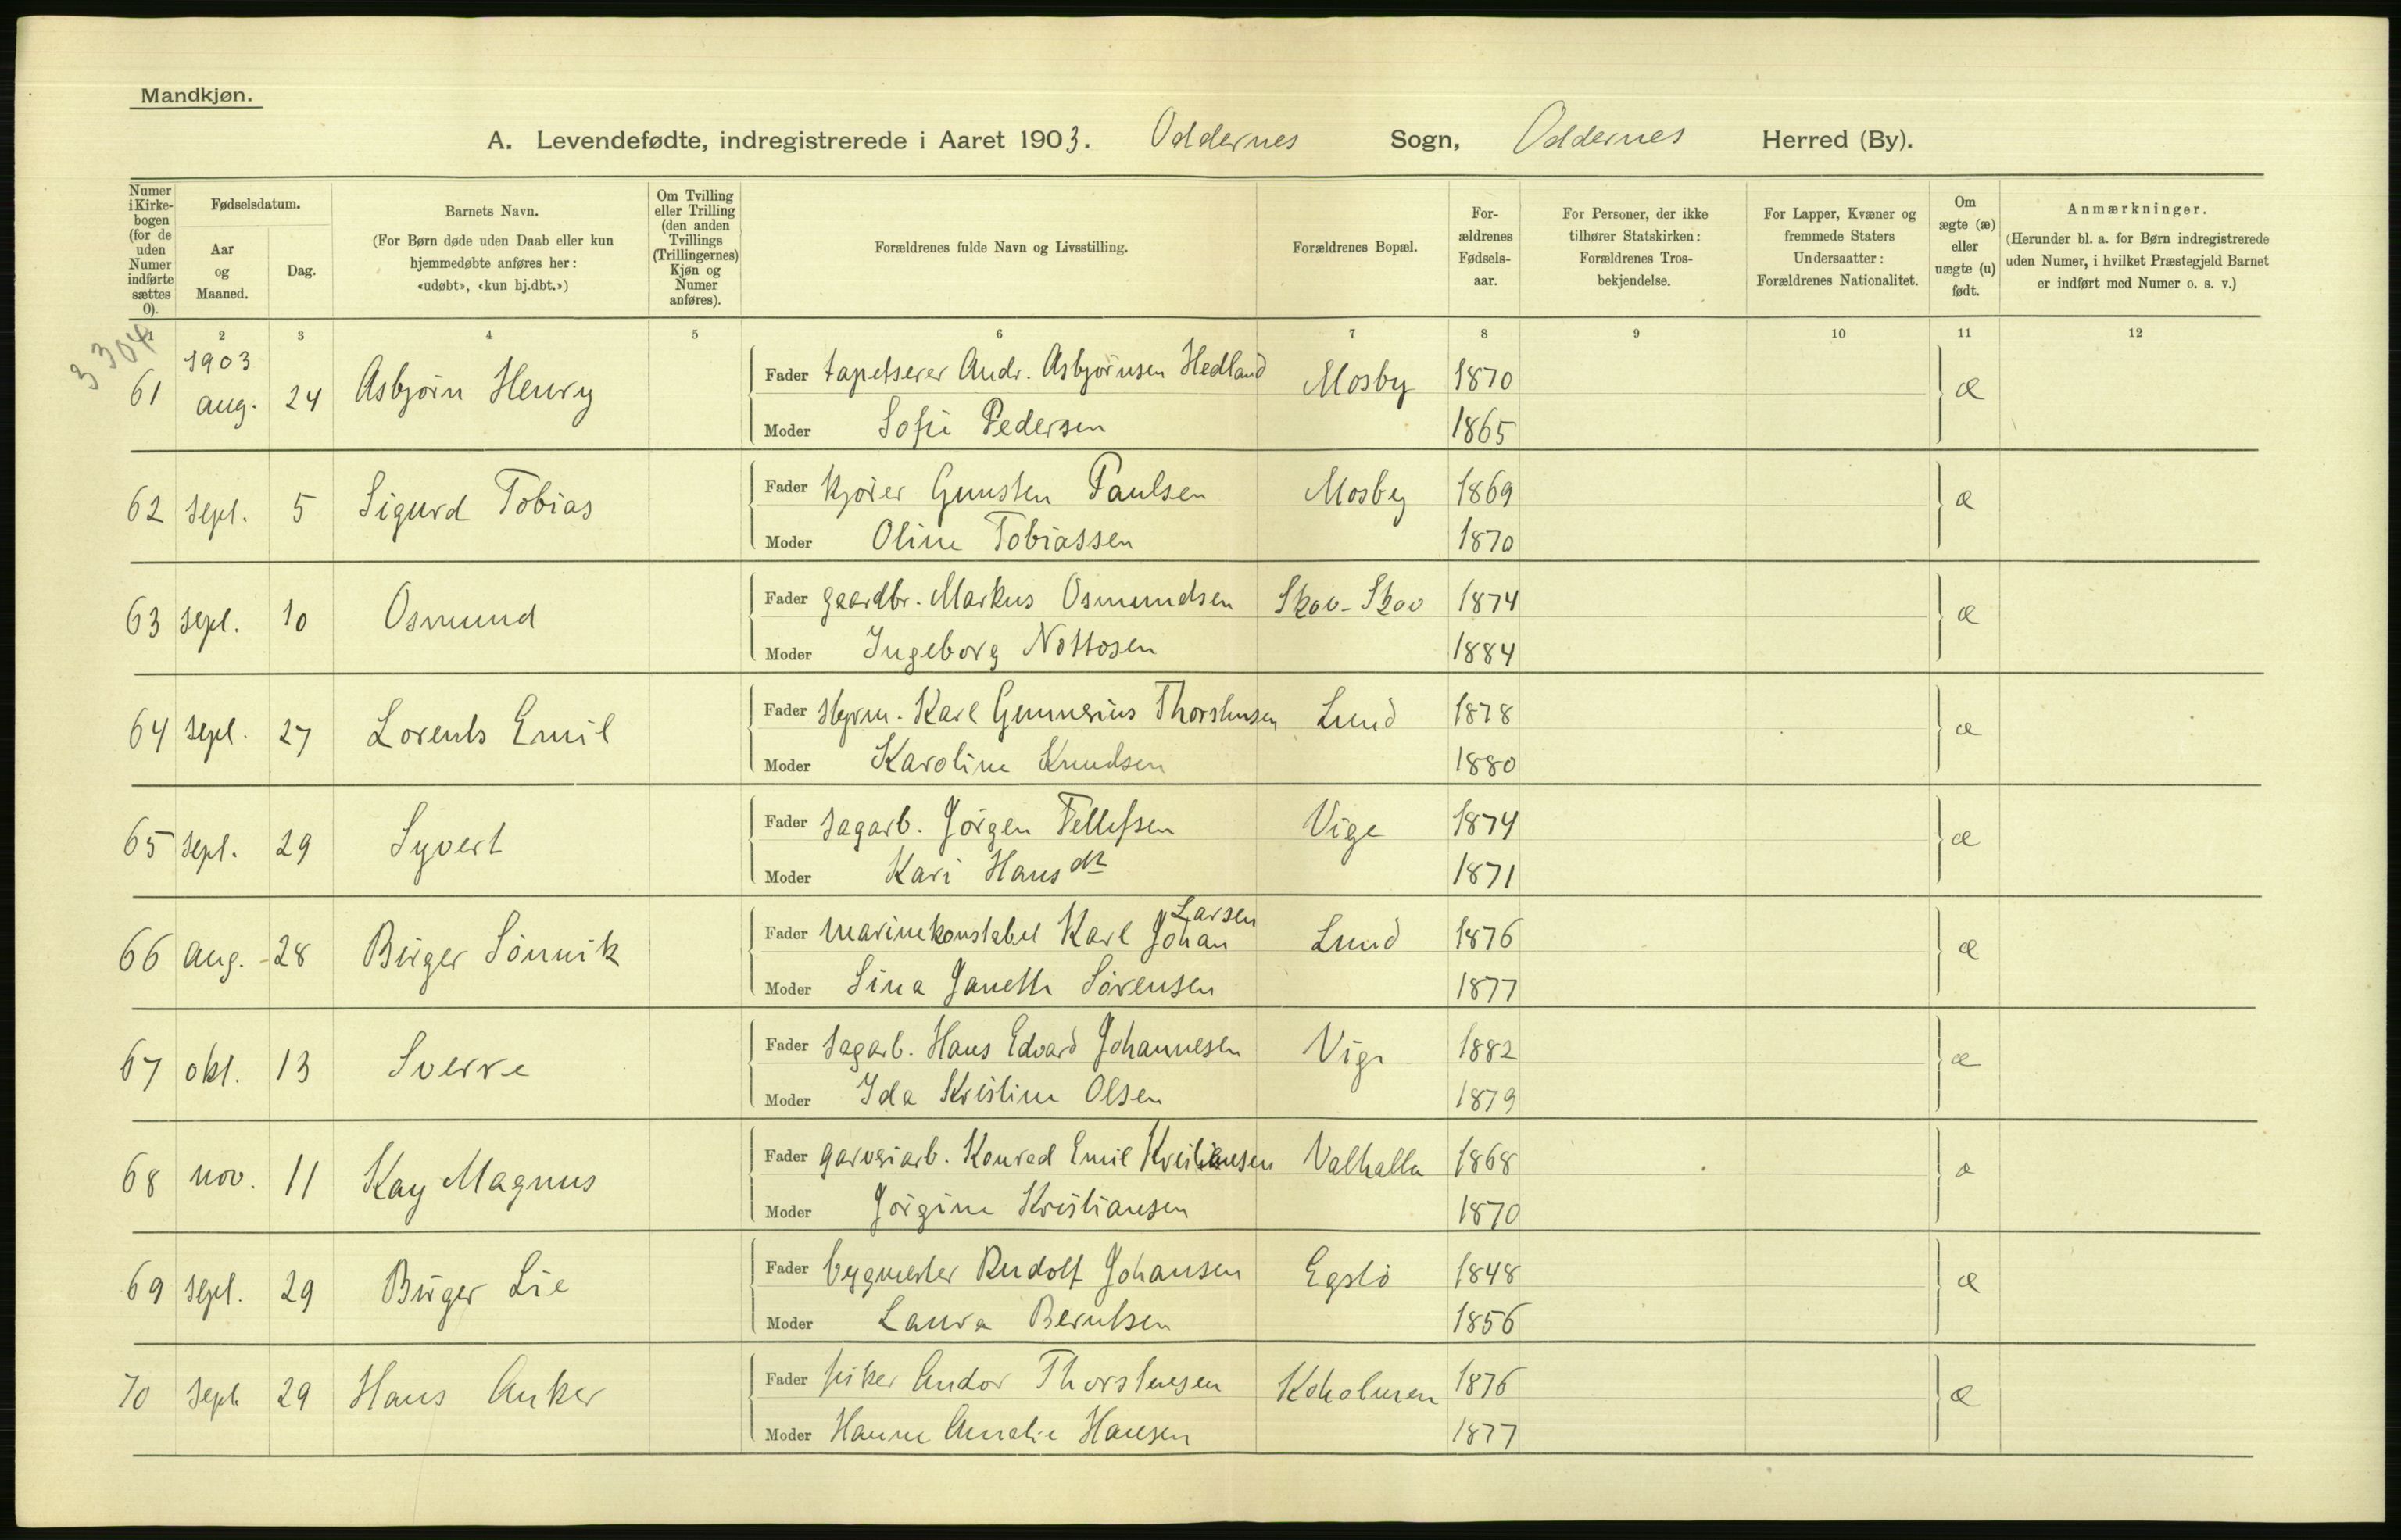 Mandkjøn.
A. Levendefødte, indregistrerede i Aaret 1903. Oddernes Sogn, Oddernes Herred (By).
Numer i Kirkebogen (for de uden Numer indførte sættes 0).
Fødselsdatum.
Aar og Maaned.
Dag.
Barnets Navn.
(For Børn døde uden Daab eller kun hjemmedøbte anføres her: «udøbt», «kun hj.dbt.»)
Om Tvilling eller Trilling (den anden Tvillings (Trillingernes) Kjøn og Numer anføres).
Forældrenes fulde Navn og Livsstilling.
Forældrenes Bopæl.
Forældrenes Fødselsaar.
For Personer, der ikke tilhører Statskirken: Forældrenes Trosbekjendelse.
For Lapper, Kvæner og fremmede Staters Undersaatter: Forældrenes Nationalitet.
Om ægte (æ) eller uægte (u) født.
Anmærkninger.
(Herunder bl. a. for Børn indregistrerede uden Numer, i hvilket Præstegjeld Barnet er indført med Numer o. s. v.)
1 2 3 4 5 6 7 8 9 10 11 12
3304
1903
61 aug. 24 Asbjørn Henry Fader tapetserer Andr. Asbjørnsen Hedland Mosby 1870 æ
Moder Sofie Pedersen 1865
62 sept. 5 Sigurd Tobias Fader kjører Gunsten Paulsen Mosby 1869 æ
Moder Oline Tobiassen 1870
63 sept. 10 Osmund Fader gaardbr. Markus Osmundsen Skov-Skov 1874 æ
Moder Ingeborg Nottosen 1884
64 sept. 27 Lorents Emil Fader styrm. Karl Gunnerius Thorstensen Lund 1878 æ
Moder Karoline Knudsen 1880
65 sept. 29 Syvert Fader sagarb. Jørgen Tellefsen Vige 1874 æ
Moder Kari Hansdtr 1871
66 aug. 28 Birger Sönnik Fader marinekonstabel Karl Johan Larsen Lund 1876 æ
Moder Sina Janette Sørensen 1877
67 okt. 13 Sverre Fader sagarb. Hans Edvard Johannesen Vige 1882 æ
Moder Ida Kristine Olsen 1879
68 nov. 11 Kay Magnus Fader garveriarb. Konrad Emil Kristiansen Valhalla 1868 æ
Moder Jørgine Kristiansen 1870
69 sept. 29 Birger Lie Fader bygmester Rudolf Johansen Egslö 1848 æ
Moder Laura Berntsen 1856
70 sept. 29 Hans Anker Fader fisker Andor Thorstensen Koholmen 1876 æ
Moder Hanne Amalie Hansen 1877